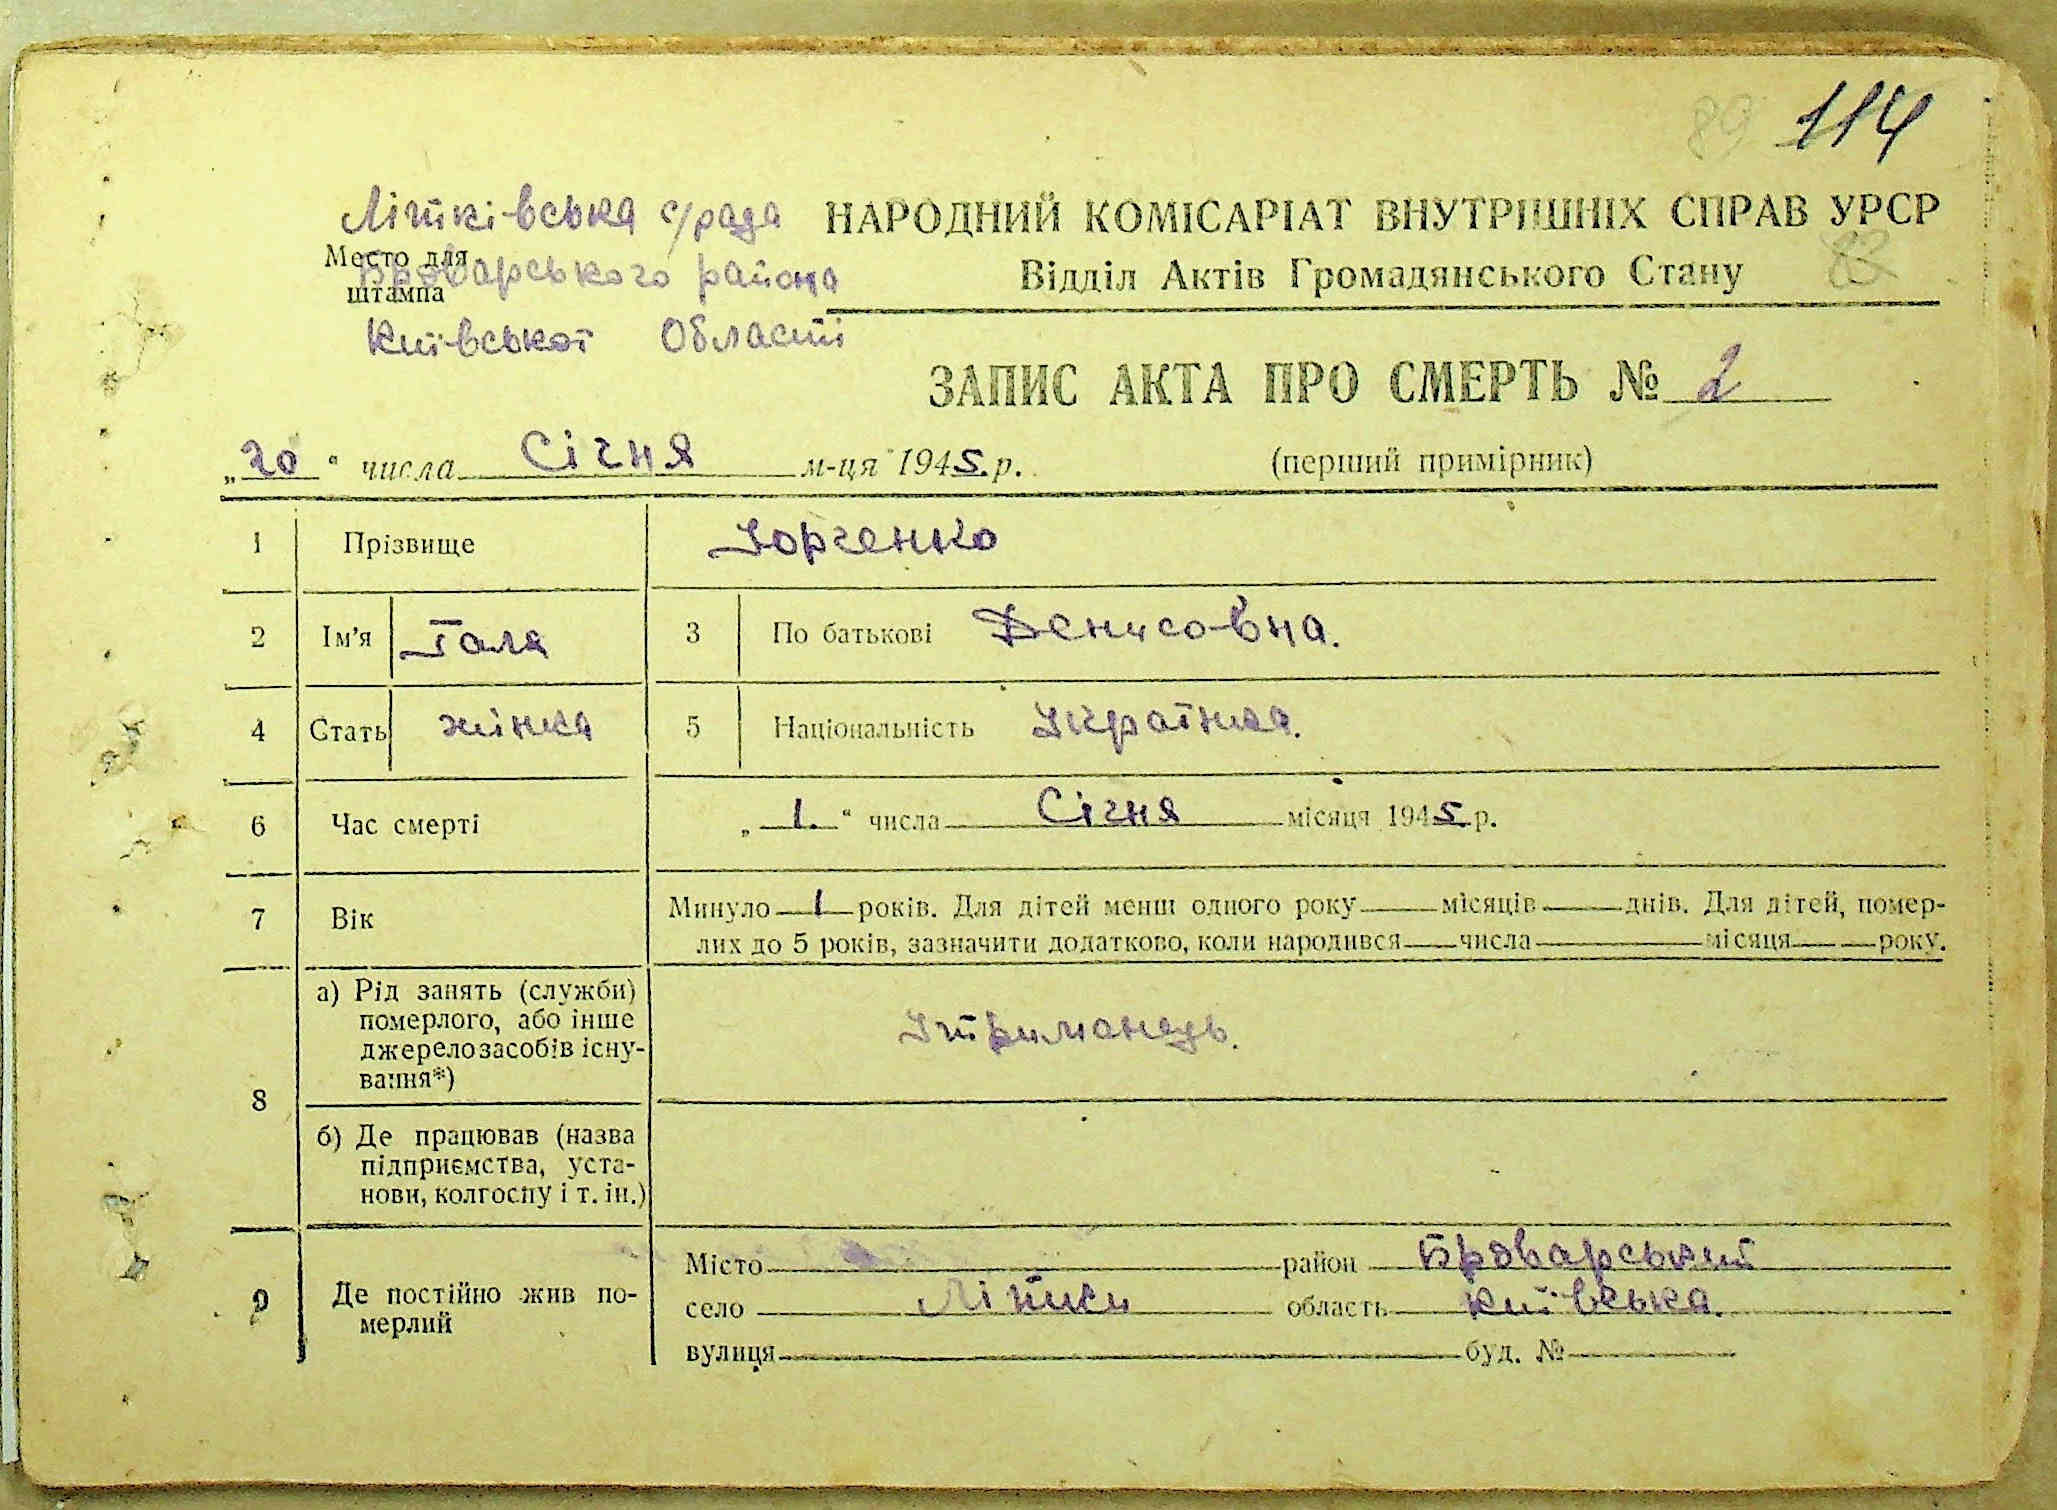 89 114
Літківська с/рада НАРОДНИЙ КОМІСАРІАТ ВНУТРІШНІХ СПРАВ УРСР
Место для штампа
Броварського района Відділ Актів Громадянського Стану 83
Київської Області
ЗАПИС АКТА ПРО СМЕРТЬ № 2
„20“ числа Січня м-ця 1945 р. (перший примірник)
1 Прізвище Юрченко
2 Ім'я Галя 3 По батькові Денисовна.
4 Стать жінка 5 Національність Українка.
6 Час смерті „1.“ числа Січня місяця 1945 р.
7 Вік Минуло 1 років. Для дітей менш одного року місяців днів. Для дітей, помер-
лих до 5 років, зазначити додатково, коли народився числа місяця року.
8 а) Рід занять (служби)
померлого, або інше
джерело засобів існу-
вання*)
Утриманець.
б) Де працював (назва
підприємства, уста-
нови, колгоспу і т. ін.)
9 Де постійно жив по-
мерлий
Місто район Броварський
село Літки область Київська.
вулиця буд. №